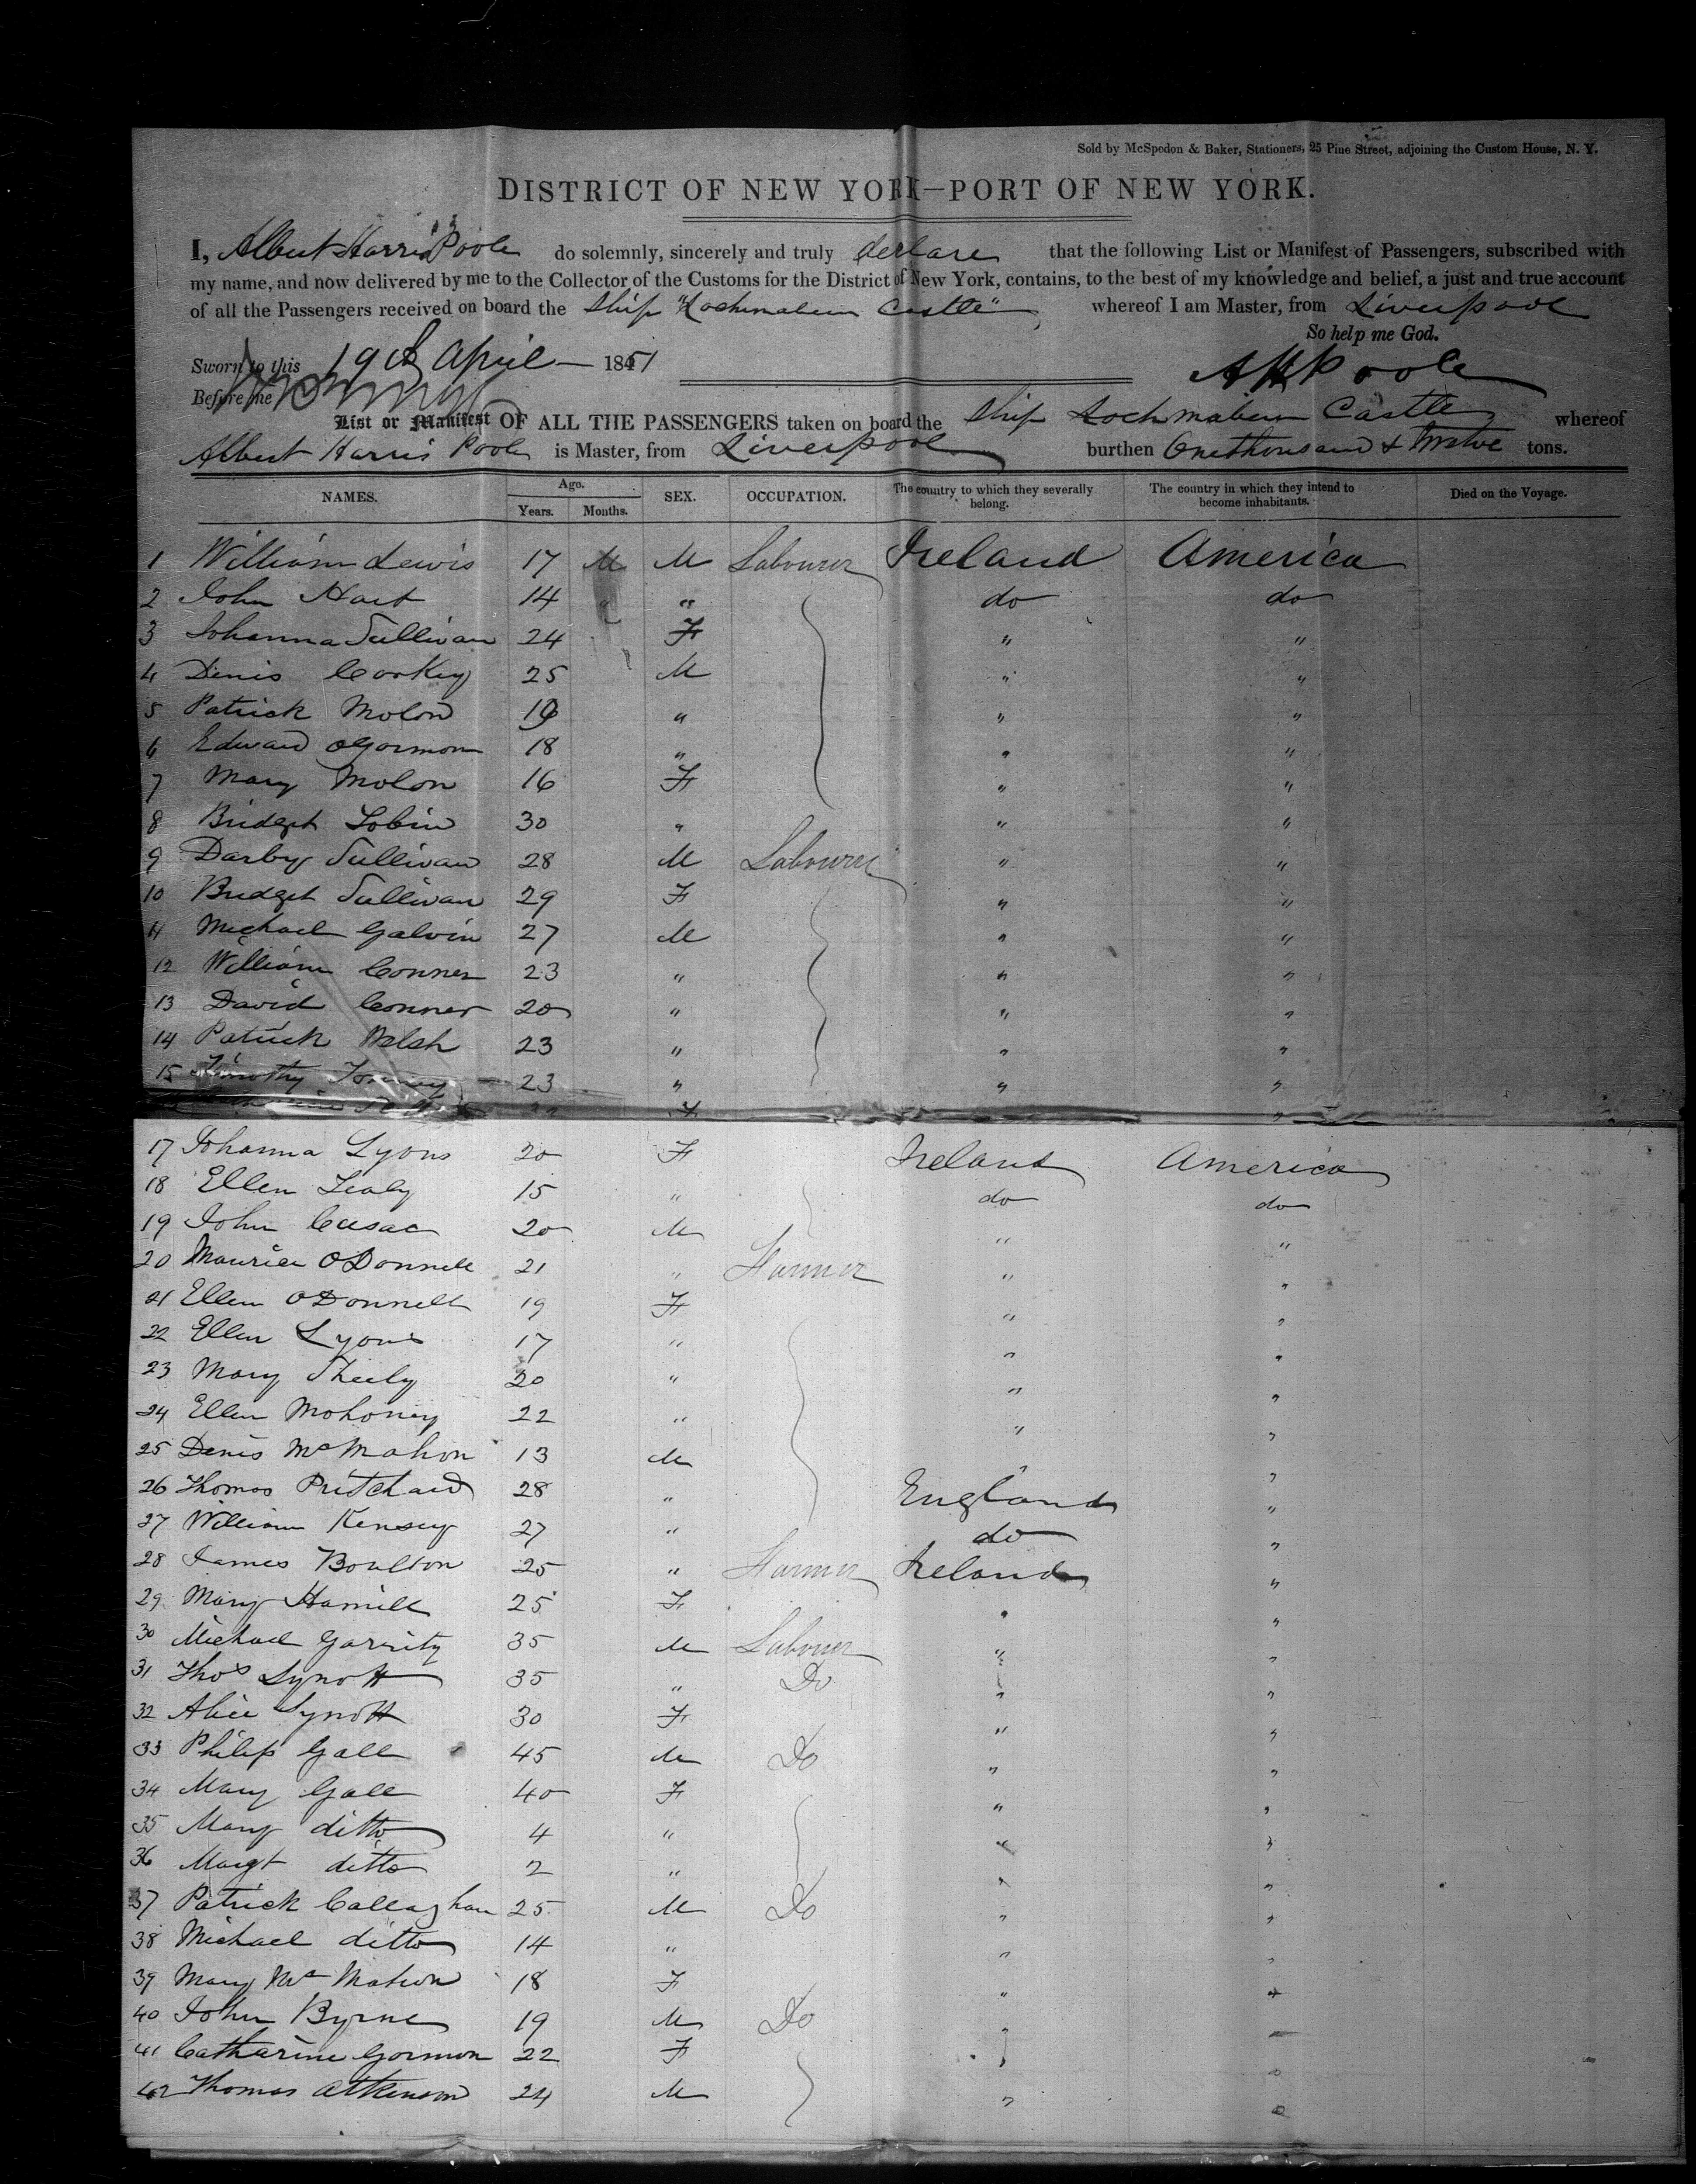 Sold by McSpedon & Baker, Stationers, 25 Pine Street, adjoining the Custom House, N. Y.
DISTRICT OF NEW YORK—PORT OF NEW YORK.
I, Albert Harris Poole do solemnly, sincerely and truly declare that the following List or Manifest of Passengers, subscribed with
my name, and now delivered by me to the Collector of the Customs for the District of New York, contains, to the best of my knowledge and belief, a just and true account
of all the Passengers received on board the Ship "Lochmaben Castle" whereof I am Master, from Liverpool
So help me God.
Sworn to this 19th April 1851
AHPoole
Before me
List or Manifest OF ALL THE PASSENGERS taken on board the Ship Lochmaben Castle whereof
Albert Harris Poole is Master, from Liverpool burthen One thousand & Twelve tons.
NAMES. Age. SEX. OCCUPATION. The country to which they severally belong. The country in which they intend to become inhabitants. Died on the Voyage.
Years. Months.
1 William Lewis 17 M M Labourer Ireland America
2 John Hart 14 " do do
3 Johanna Sullivan 24 F " "
4 Denis 25 M " "
5 Patrick Molon " " "
6 Edward OGorman 18 " " "
7 Mary Molon 16 F " "
8 Bridget Tobin 30 " " "
9 Darby Sullivan 28 M Labourer " "
10 Bridget Sullivan 29 F " "
11 Michael Galvin 27 M " "
12 William Conner 23 " " "
13 David Conner 20 " " "
14 Patrick Walsh 23 " " "
15 Timothy 23 " " "
F "
17 Johanna Lyons 20 F Ireland America
18 Ellen 15 " do do
19 John Cusac 20 M " "
20 Maurice ODonnell 21 " Farmer " "
21 Ellen ODonnell 19 F " "
22 Ellen Lyons 17 " " "
23 Mary Sheely 20 " " "
24 Ellen Mohoney 22 " " "
25 Denis McMahon 13 M " "
26 Thomas Pritchard 28 " England "
27 William Kensey 27 " do "
28 James Boulton 25 " Farmer Ireland "
29 Mary Hamill 25 F " "
30 Michael Garrity 35 M Labourer " "
31 Thos Synott 35 " Do " "
32 Alice Synott 30 F " "
33 Philip Gall 45 M Do " "
34 Mary Gall 40 F " "
35 Mary ditto 4 " " "
36 Margt ditto 2 " " "
37 Patrick Callaghan 25 M Do " "
38 Michael ditto 14 " " "
39 Mary McMahon 18 F " "
40 John Byrne 19 M Do "
41 Catharine Gormon 22 F "
42 Thomas Atkinson 24 M "